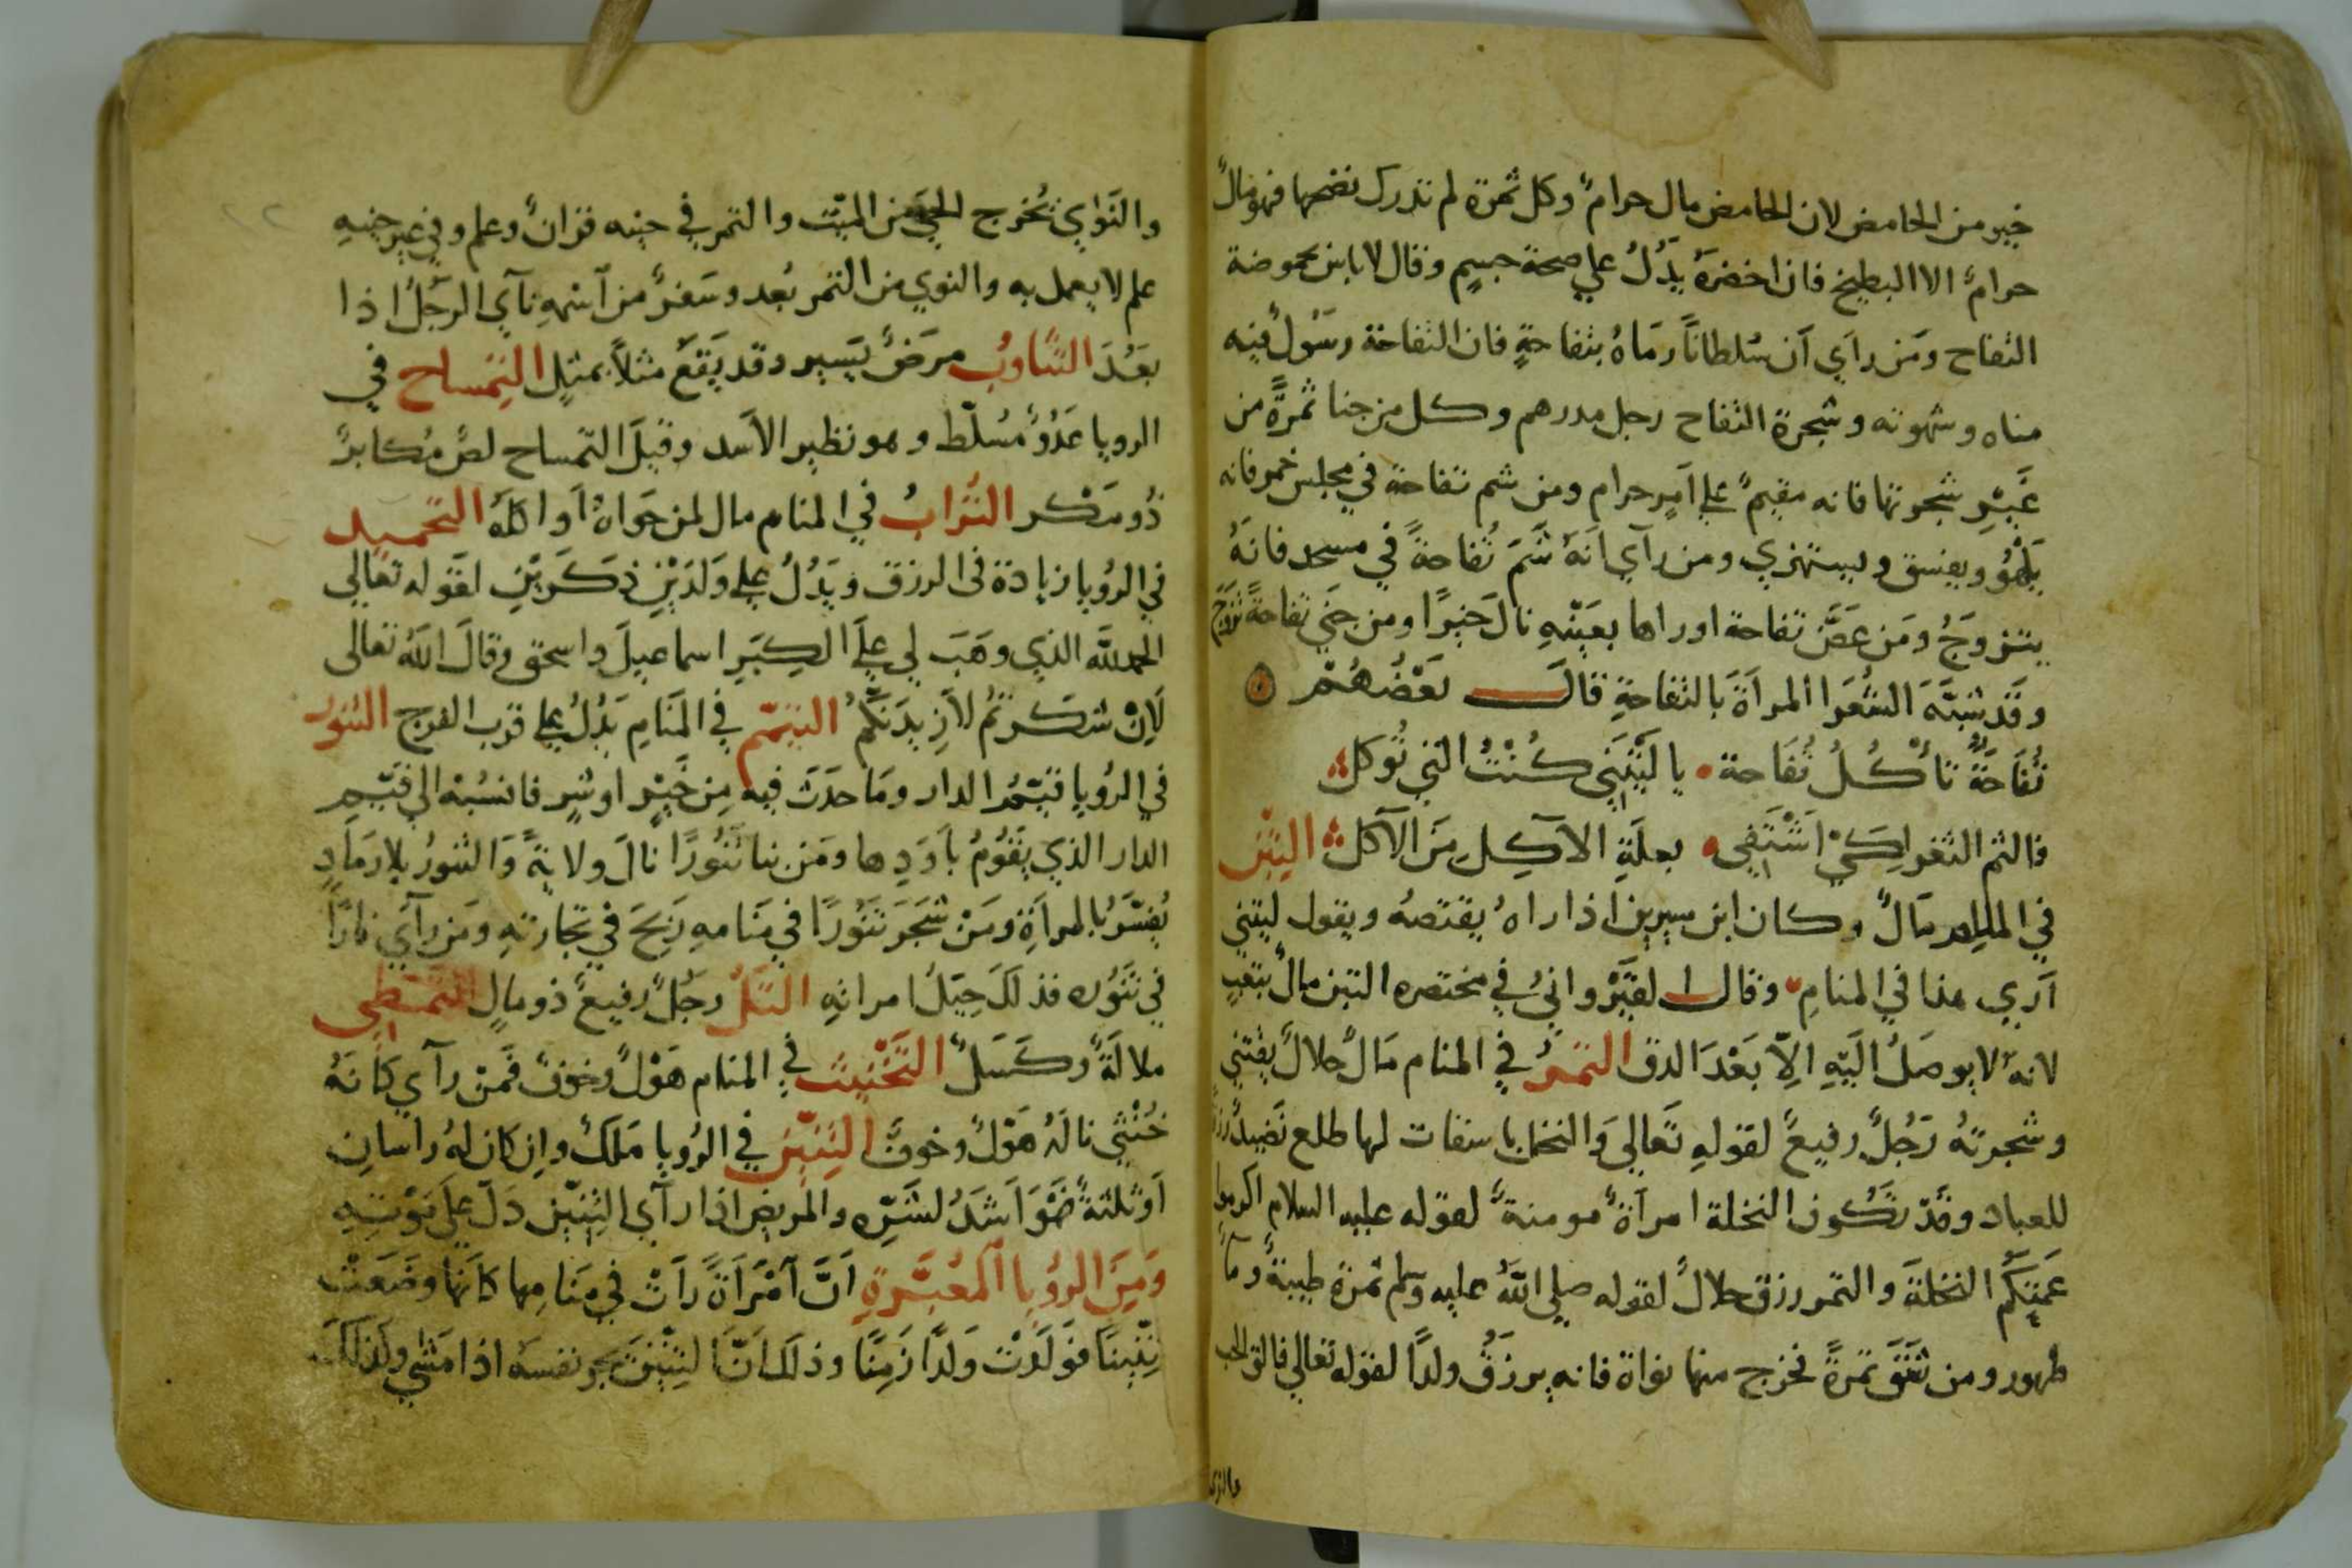 خير من الحامض لان الحامض مال حرامٌ وكل ثمرة لم تدرك نضجها فهو مالٌ
حرامٌ الا البطيخ فان اخضرَهُ يدُلُ علي صحة جسمٍ وقال لا باس بحموضة
التفاح ومَن رأي أن سُلطاناً رمَاهُ بتفاحةٍ فان التفاحة رسَولٌ فيه
مناه وشهوته وشجرة التفاح رجل مدرهم وكل من جنا ثمرةً من
غَيرِ شجرتها فانه مقيمٌ علي امرٍ حرام ومن شم تفاحة في مجلس خمر فانه
يَلْهُو ويفسق ويستهزي ومن رآي انَهُ شَمَ تُفاحةً في مسجد فانَهُ
يتزوجُ ومَن عَضَّ تفاحة اوراها بعَيْنهِ نالَ خيرًا ومن جني تفاحةً تزوج
وقَد شبَّهَ الشُعَرا المراةَ بالتفاحةِ قالَ بعَضُهُمْ
تُفَاحَةٌ تأكُلُ تُفَاحة يا ليَتْنَي كُنْتُ التي تُوكل
فالثم الثغر لِكَيْ اَشْتَفِي بعلَةِ الآكِلِ مَنَ الآكل التِبْن
في المنام مَالٌ وكان ابن سيرين اذا راهُ يقتصهُ ويقول ليتني
آرَي هذا في المنامِ وقال القَيَرْوانيُ في مختصره التبن مالٌ بتعبٍ
لانهُ لا يوصَلُ اليَهِ اِلاّ بَعْدَ الدق التمَرُ في المنام مَالٌ حلالٌ يقتني
وشجرتهُ رَجُلٌ رفيعٌ لقولهِ تَعالي وَالنخل باسقات لها طلع نَضيدٌ رزقاً
للعباد وقَدْ تَكُون النخلة امرآةً مومنةً لقوله عليه السلام اكرموا
عَمتِكُم النخلةَ والتمر رزق حلالٌ لقوله صلي اللَّهُ عليه وسلم تمرة طيبةٌ ومآ
طهور ومن شَقَقَ تمرةً فخرج منها نواة فانه يرزقُ ولدًا لقوله تعالي فالق الحب
والنوي
والنَوَاي تُخرج الحَيَّ من الميّت والتمر في حينه قرانٌ وعلم وفي غير حينهِ
علم لا يعمل به والنوي من التمر بُعد وسَفرٌ من آسْمهِ نآي الرجلُ اذا
بعَدَ التثاوبُ مرَضٌ يَسَير وقد يَقعَ مثلاً بمثلٍ التِمْساح في
الرويا عَدُوٌ مُسلّط وهو نظير الاسد وقيلَ التمساح لصٌ مُكابرٌ
ذُو مَكْر التُرَابُ في المنام مال لمن حَوَاهُ أو اكلهُ التحميد
في الرُويا زيادة في الرزق ويَدُلُ علي وَلدَيْنِ ذكَرَيْنِ لقَوله تعالي
الحمد للَّه الذي وهَبَ لي عليَ الكِبَرِ اسماعيلَ واسحق وقالَ اللّهُ تعالي
لَإنْ شكَرتُم لأزِيدَنَكُم التيَمّم في المَنامِ يَدُلُ علي قرب الفرج التنور
في الرُويا قيّمُ الدار ومَا حدَثَ فيه مِن خَيْرٍ اوشرٍ فانسُبْهُ الي قيّمِ
الدار الذي يَقوُمُ بأوَدِها ومَن بنا تَنّورًا نالَ ولايةً وَالتنورُ بلا رَمادٍ
يُفسّرُ بالمرأةِ ومَنْ سَجَرَ تنَوُرًا في مَنامهِ رَبحَ في تجارتهِ ومَن رآي نارًا
في تَنَّوُره فذلَكَ حبَلُ امراتهِ التَلُ رجُلٌ رفيعٌ ذو مالٍ التمَطي
ملالَةٌ وكَسَلٌ التَخْنيثَ في المنام هَوْلٌ وخوفٌ فَمن رآي كانَهُ
خُنْثي نالهَ هَوْلٌ وخوفٌ التِنّيْنُ في الرُويا مَلكٌ وإن كان لهُ راسان
اَوثلثةٌ فهَوُ اَشدَّ لشَرّهِ والمريض اذا رآي التِنّينَ دَلَ علَي مَوْتهِ
وَمِنَ الروُيا المُعَبَّرةِ اَنَّ آمْرَاَةً رَاَتْ في مَنامِها كاَنَها وضَعَتْ
تِنِّيناً فوَلَدَتْ وَلدًا زَمِنًا وذلك اَنَّ التِنّيْنَ يجر نفسَهُ اذا مَشي ولذلكَ